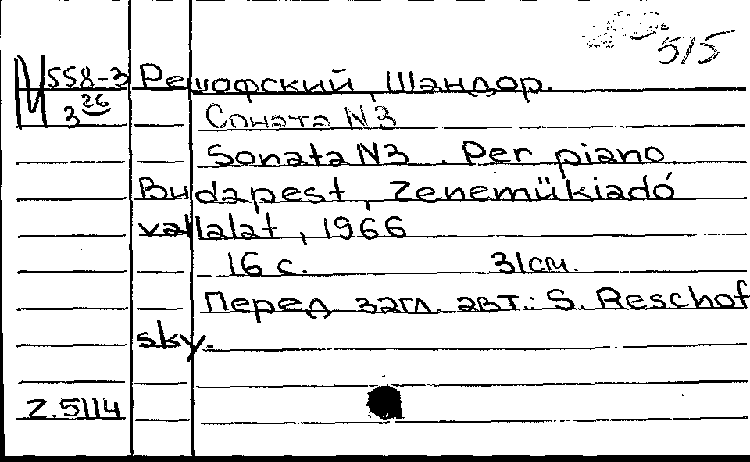 515
М 558-3 Решофский, Шандор.
3 26 Соната N3
Sonata N3. Per piano.
Budapest, Zeneműkiadó
vallalat, 1966
16 с. 31см.
Перед загл. авт.: S. Reschof
sky.
Z.5114